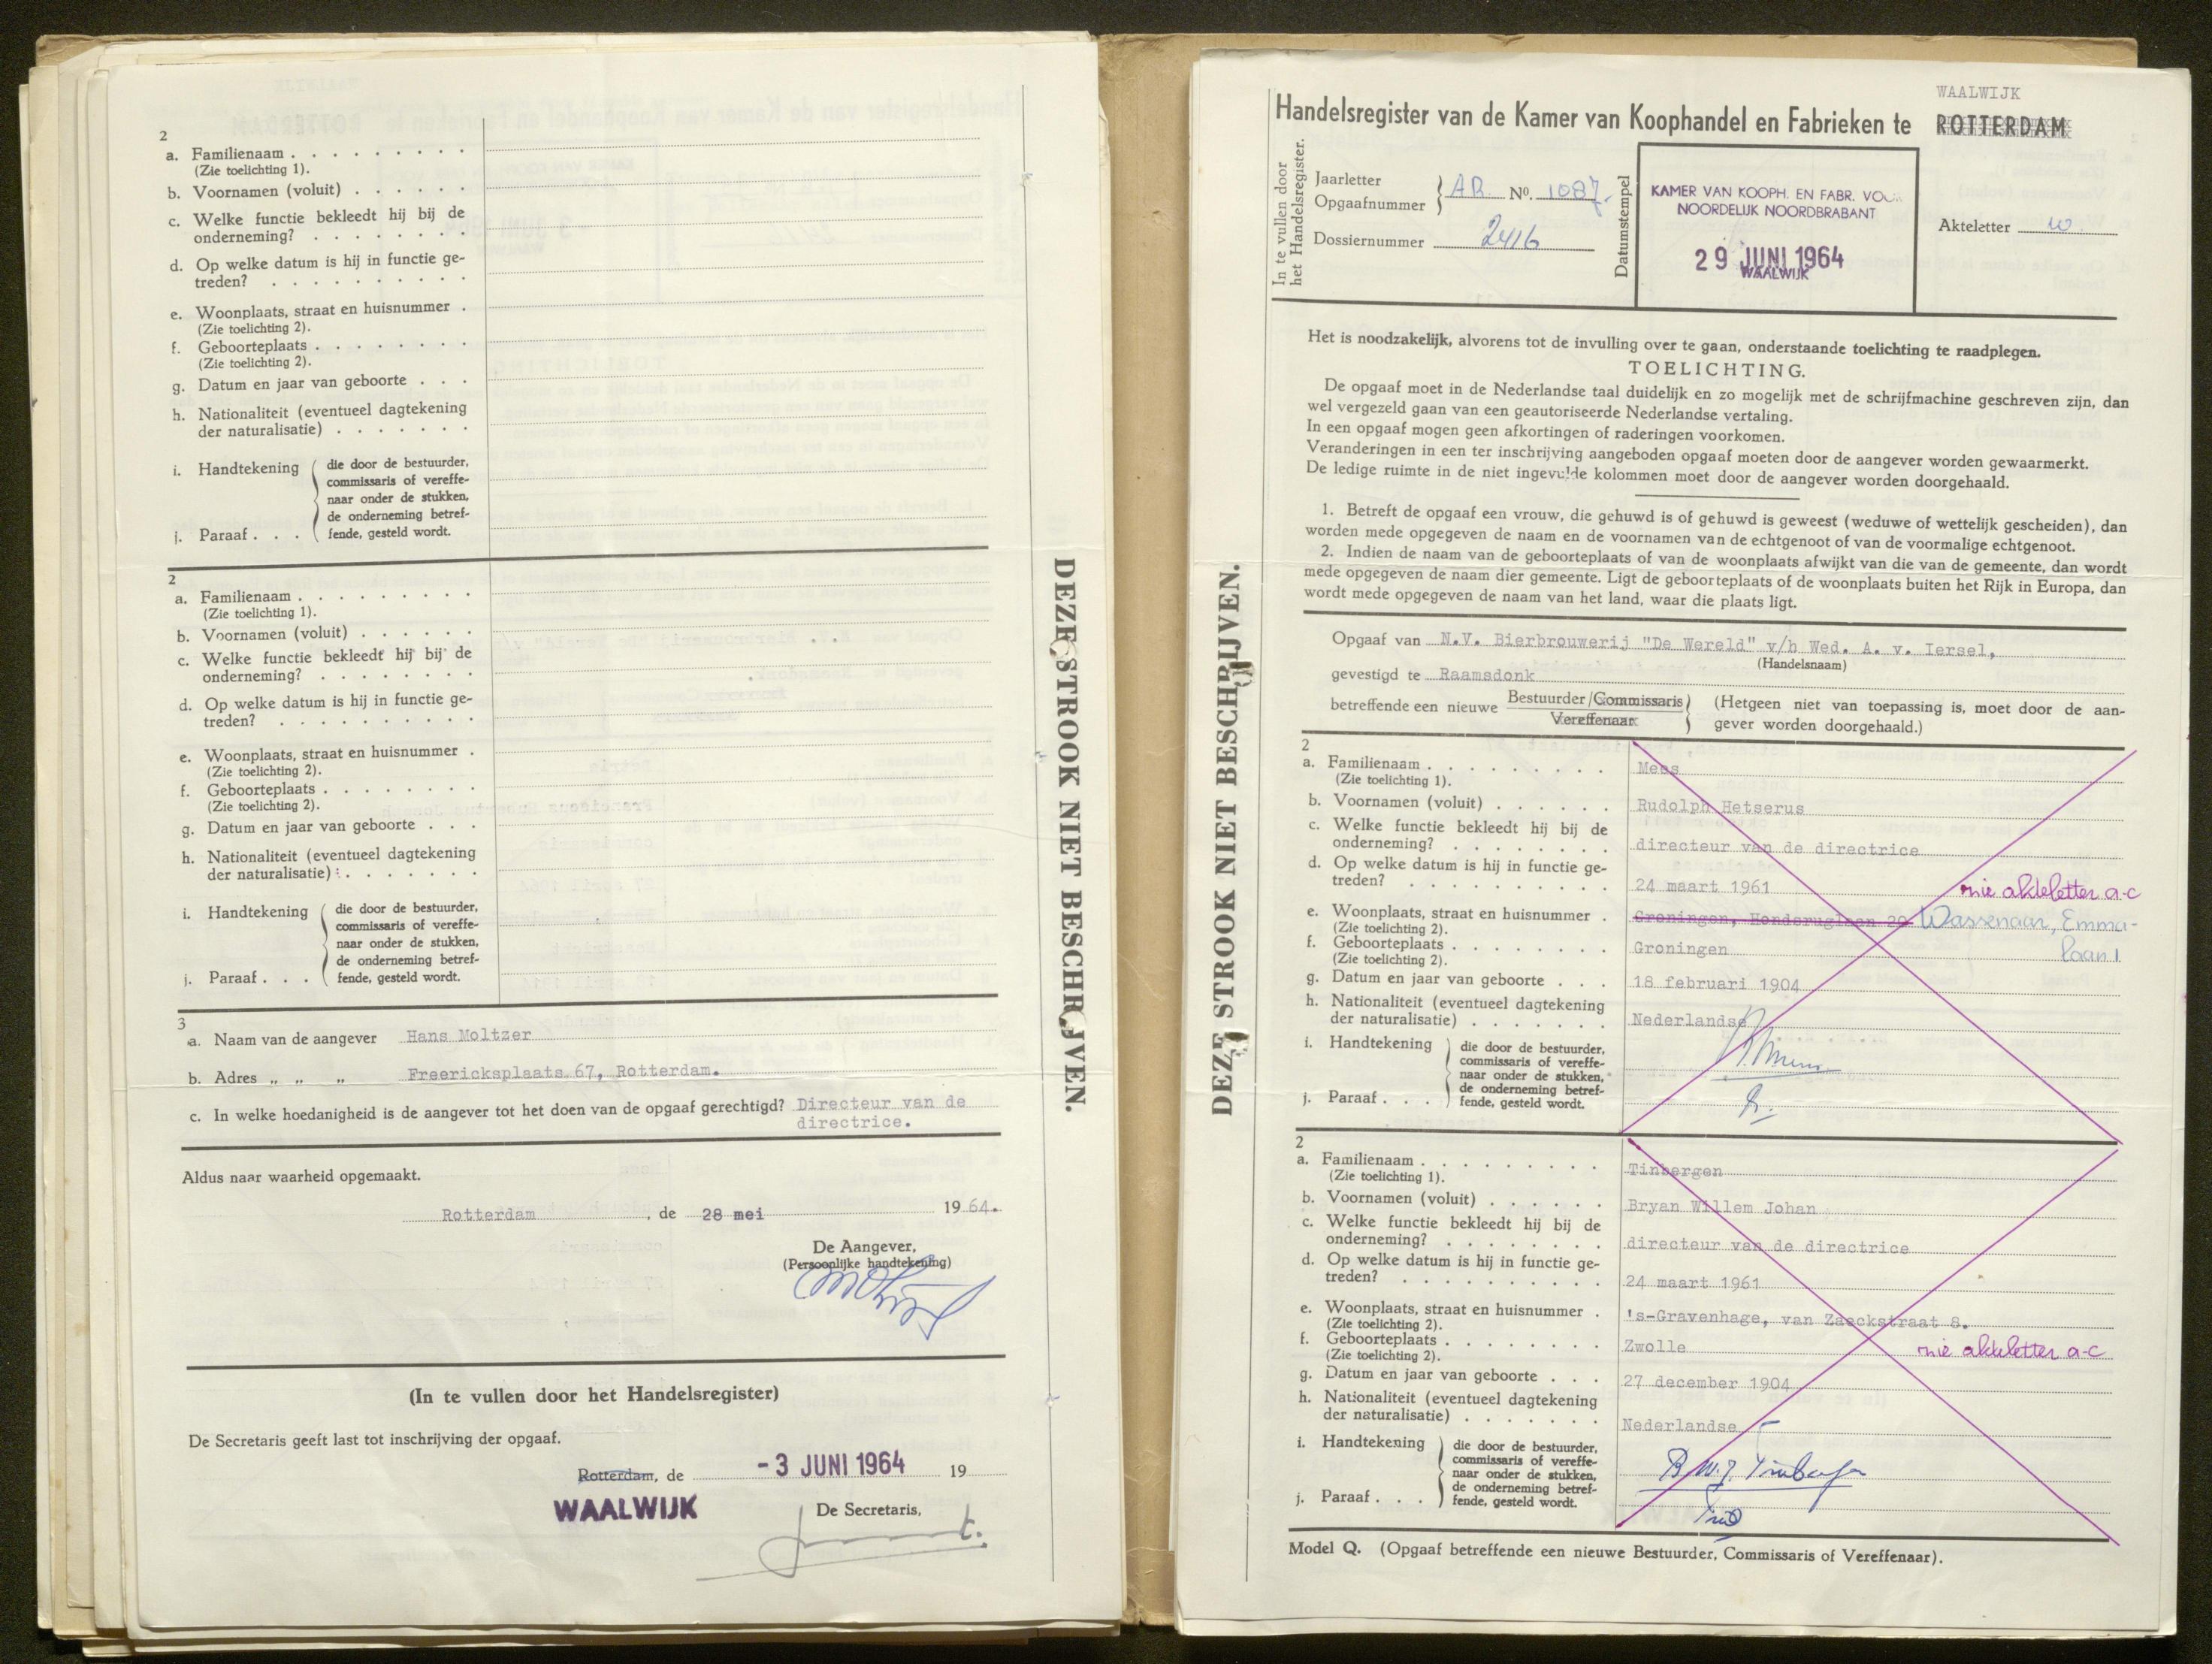 2
a. Familienaam . . . . . . . . .
(Zie toelichting 1).
b. Voornamen (voluit) . . . . . .
c. Welke functie bekleedt hij bij de
onderneming? . . . . . . . .
d. Op welke datum is hij in functie ge-
treden? . . . . . . . . . .
e. Woonplaats, straat en huisnummer .
(Zie toelichting 2).
f. Geboorteplaats . . . . . . . .
(Zie toelichting 2).
g. Datum en jaar van geboorte . . .
h. Nationaliteit (eventueel dagtekening
der naturalisatie) . . . . . . .
i. Handtekening
die door de bestuurder,
commissaris of vereffe-
naar onder de stukken,
de onderneming betref-
fende, gesteld wordt.
j. Paraaf . . .
2
a. Familienaam . . . . . . . . .
(Zie toelichting 1).
b. Voornamen (voluit) . . . . . .
c. Welke functie bekleedt hij bij de
onderneming? . . . . . . . .
d. Op welke datum is hij in functie ge-
treden? . . . . . . . . . .
e. Woonplaats, straat en huisnummer .
(Zie toelichting 2).
f. Geboorteplaats . . . . . . . .
(Zie toelichting 2).
g. Datum en jaar van geboorte . . .
h. Nationaliteit (eventueel dagtekening
der naturalisatie) . . . . . . .
i. Handtekening
die door de bestuurder,
commissaris of vereffe-
naar onder de stukken,
de onderneming betref-
fende, gesteld wordt.
j. Paraaf . . .
3
a. Naam van de aangever Hans Moltzer
b. Adres „ „ „ Freericksplaats 67, Rotterdam.
c. In welke hoedanigheid is de aangever tot het doen van de opgaaf gerechtigd? Directeur van de
directrice.
Aldus naar waarheid opgemaakt.
Rotterdam, de 28 mei 1964.
De Aangever,
(Persoonlijke handtekening)
(In te vullen door het Handelsregister)
De Secretaris geeft last tot inschrijving der opgaaf.
Rotterdam, de - 3 JUNI 1964 19
WAALWIJK
De Secretaris,
DEZE STROOK NIET BESCHRIJVEN.
DEZE STROOK NIET BESCHRIJVEN.
WAALWIJK
Handelsregister van de Kamer van Koophandel en Fabrieken te ROTTERDAM
In te vullen door
het Handelsregister.
Jaarletter
Opgaafnummer
AR. No. 1087.
Dossiernummer 2416
Datumstempel
KAMER VAN KOOPH. EN FABR. VOOR
NOORDELIJK NOORDBRABANT
29 JUNI 1964
WAALWIJK
Akteletter w
Het is noodzakelijk, alvorens tot de invulling over te gaan, onderstaande toelichting te raadplegen.
TOELICHTING.
De opgaaf moet in de Nederlandse taal duidelijk en zo mogelijk met de schrijfmachine geschreven zijn, dan
wel vergezeld gaan van een geautoriseerde Nederlandse vertaling.
In een opgaaf mogen geen afkortingen of raderingen voorkomen.
Veranderingen in een ter inschrijving aangeboden opgaaf moeten door de aangever worden gewaarmerkt.
De ledige ruimte in de niet ingevulde kolommen moet door de aangever worden doorgehaald.
1. Betreft de opgaaf een vrouw, die gehuwd is of gehuwd is geweest (weduwe of wettelijk gescheiden), dan
worden mede opgegeven de naam en de voornamen van de echtgenoot of van de voormalige echtgenoot.
2. Indien de naam van de geboorteplaats of van de woonplaats afwijkt van die van de gemeente, dan wordt
mede opgegeven de naam dier gemeente. Ligt de geboorteplaats of de woonplaats buiten het Rijk in Europa, dan
wordt mede opgegeven de naam van het land, waar die plaats ligt.
Opgaaf van N.V. Bierbrouwerij "De Wereld" v/h Wed. A. v. Iersel,
(Handelsnaam)
gevestigd te Raamsdonk
betreffende een nieuwe Bestuurder/Commissaris
Vereffenaar
(Hetgeen niet van toepassing is, moet door de aan-
gever worden doorgehaald.)
2
a. Familienaam . . . . . . . . . Mees
(Zie toelichting 1).
b. Voornamen (voluit) . . . . . . Rudolph Hetserus
c. Welke functie bekleedt hij bij de
onderneming? . . . . . . . . directeur van de directrice
d. Op welke datum is hij in functie ge-
treden? . . . . . . . . . . 24 maart 1961
mie akteletter a-c
e. Woonplaats, straat en huisnummer . Groningen, Hondsruglaan 20 Wassenaar, Emma-
laan 1
(Zie toelichting 2).
f. Geboorteplaats . . . . . . . . Groningen
(Zie toelichting 2).
g. Datum en jaar van geboorte . . . 18 februari 1904
h. Nationaliteit (eventueel dagtekening
der naturalisatie) . . . . . . . Nederlandse
i. Handtekening
die door de bestuurder,
commissaris of vereffe-
naar onder de stukken,
de onderneming betref-
fende, gesteld wordt.
j. Paraaf . . .
2
a. Familienaam . . . . . . . . . Tinbergen
(Zie toelichting 1).
b. Voornamen (voluit) . . . . . . Bryan Willem Johan
c. Welke functie bekleedt hij bij de
onderneming? . . . . . . . . directeur van de directrice
d. Op welke datum is hij in functie ge-
treden? . . . . . . . . . . 24 maart 1961
e. Woonplaats, straat en huisnummer . 's-Gravenhage, van Zaeckstraat 8.
(Zie toelichting 2).
f. Geboorteplaats . . . . . . . . Zwolle
mie akteletter a-c
(Zie toelichting 2).
g. Datum en jaar van geboorte . . . 27 december 1904
h. Nationaliteit (eventueel dagtekening
der naturalisatie) . . . . . . . Nederlandse
i. Handtekening
die door de bestuurder,
commissaris of vereffe-
naar onder de stukken,
de onderneming betref-
fende, gesteld wordt.
B.W.J. Tinbergen
j. Paraaf . . .
Model Q. (Opgaaf betreffende een nieuwe Bestuurder, Commissaris of Vereffenaar).